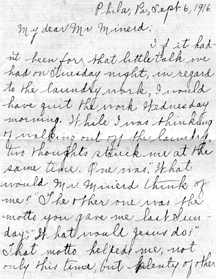 Phila, Pa, Sept 6, 1916
My dear Mr Minerd.
If it had-
n't been for that little talk we
had on Tuesday night, in regard
to the laundry work, I would
have quit the work Wednesday
morning. While I was thinking
of walking out of the laundry
two thoughts struck me at the
same time. One was, "What
would Mr. Minerd think of
me?" The other one was the
motto you gave me last Sun-
day; "What would Jesus do?"
That motto helped me, not
only this time but plenty of other